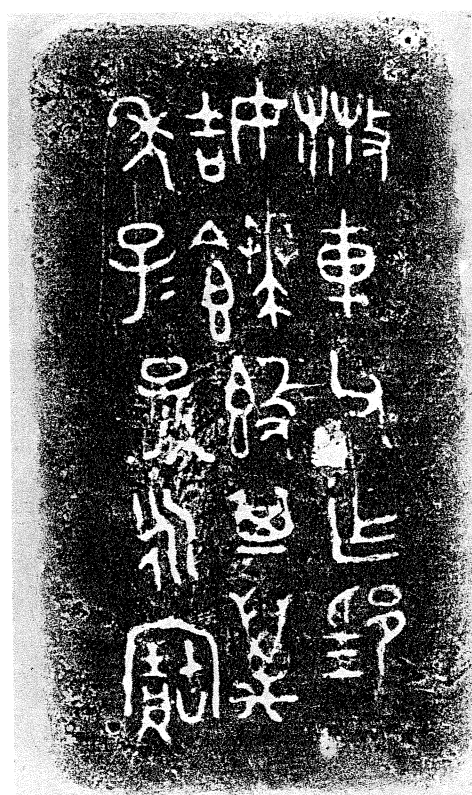 散車父乍
姞餴簋其萬
年子=孫永寶